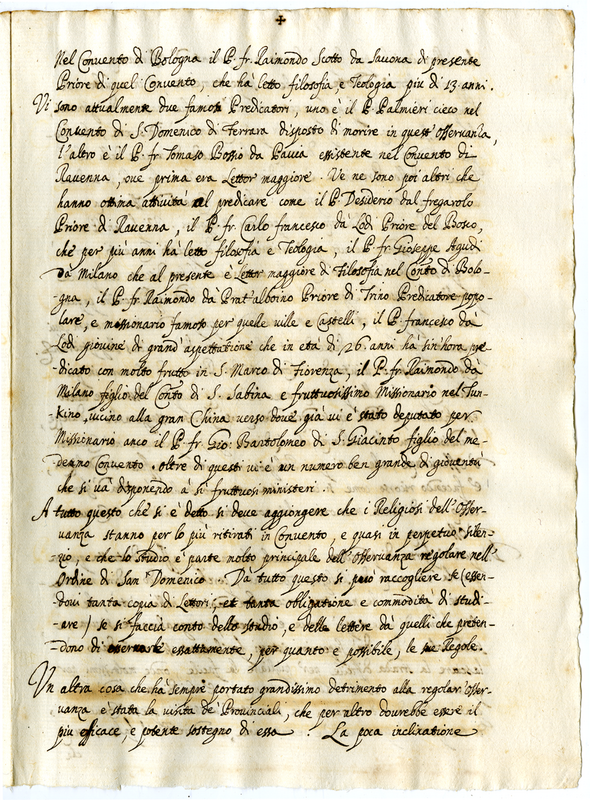 Nel Convento di Bologna il P. fr. Raimondo Scotto da Savona di presente
Priore di quel Convento, che ha letto filosofia, e Teologia piu di 13 anni.
Vi sono attualmente due famosi Predicatori, uno è il P. Palmieri cieco nel
Convento di S. Domenico di Ferrara disposto di morire in quest'Osservanza,
l'altro è il P. fr. Tomaso Bossio da Pavia esistente nel Convento di
Ravenna, ove prima era Lettor maggiore. Ve ne sono poi altri che
hanno ottima attività nel predicare come il P. Desiderio dal fregarolo
Priore di Ravenna, il P. fr. Carlo francesco da Lodi Priore del Bosco,
che per più anni ha letto filosofia e Teologia, il P. fr. Gioseppe Agudi
da Milano che al presente e Lettor maggiore di Filosofia nel Conto di Bolo-
-gna, il P. fr. Raimondo da Prat'alboino Priore di Trino Predicatore popo-
-lare, e missionario famoso per quelle ville e Castelli, il P. francesco da
Lodi giovine di grand'aspettatione che in età di 26 anni ha sin'hora pre-
-dicato con molto frutto in S. Marco di Fiorenza, il P. fr. Raimondo da
Milano figlio del Conto di S. Sabina e fruttuosissimo Missionario nel Tun-
-kino, vicino alla gran China verso dove già vi è stato deputato per
Missionario anco il P. fr. Gio. Bartolomeo di S. Giacinto figlio del me-
-demo Convento. oltre di questi vi è un numero ben grande di gioventù
che si và disponendo à si fruttuosi ministeri
A tutto questo che si e detto si deve aggiongere che i Religiosi dell'Osser-
-vanza stanno per lo più ritirati in Convento, e quasi in perpetuo silen-
-zio, e che lo studio è parte molto principale dell'Osservanza regolare nell'
Ordine di San Domenico. Da tutto questo si può raccogliere se (essen-
-dovi tanta copia di Lettori, et tanta obligatione e commodita di studi-
-are) se si faccia conto dello studio, e delle lettere da quelli che preten-
-dono di osservare essattamente, per quanto e possibile, le sue Regole.
Un altra cosa che ha sempre portato grandissimo detrimento alla regolar'Osser-
-vanza è stata la visita de Provinciali, che per altro dovrebbe essere il
piu efficace, e potente sostegno di essa. La poca inclinatione